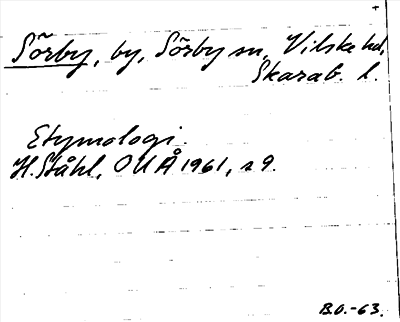 +
Sörby, by, Sörby sn, Vilske hd,
Skarab. l.
Etymologi.
H. Ståhl, OUÅ 1961, s 9.
B.O.-63.